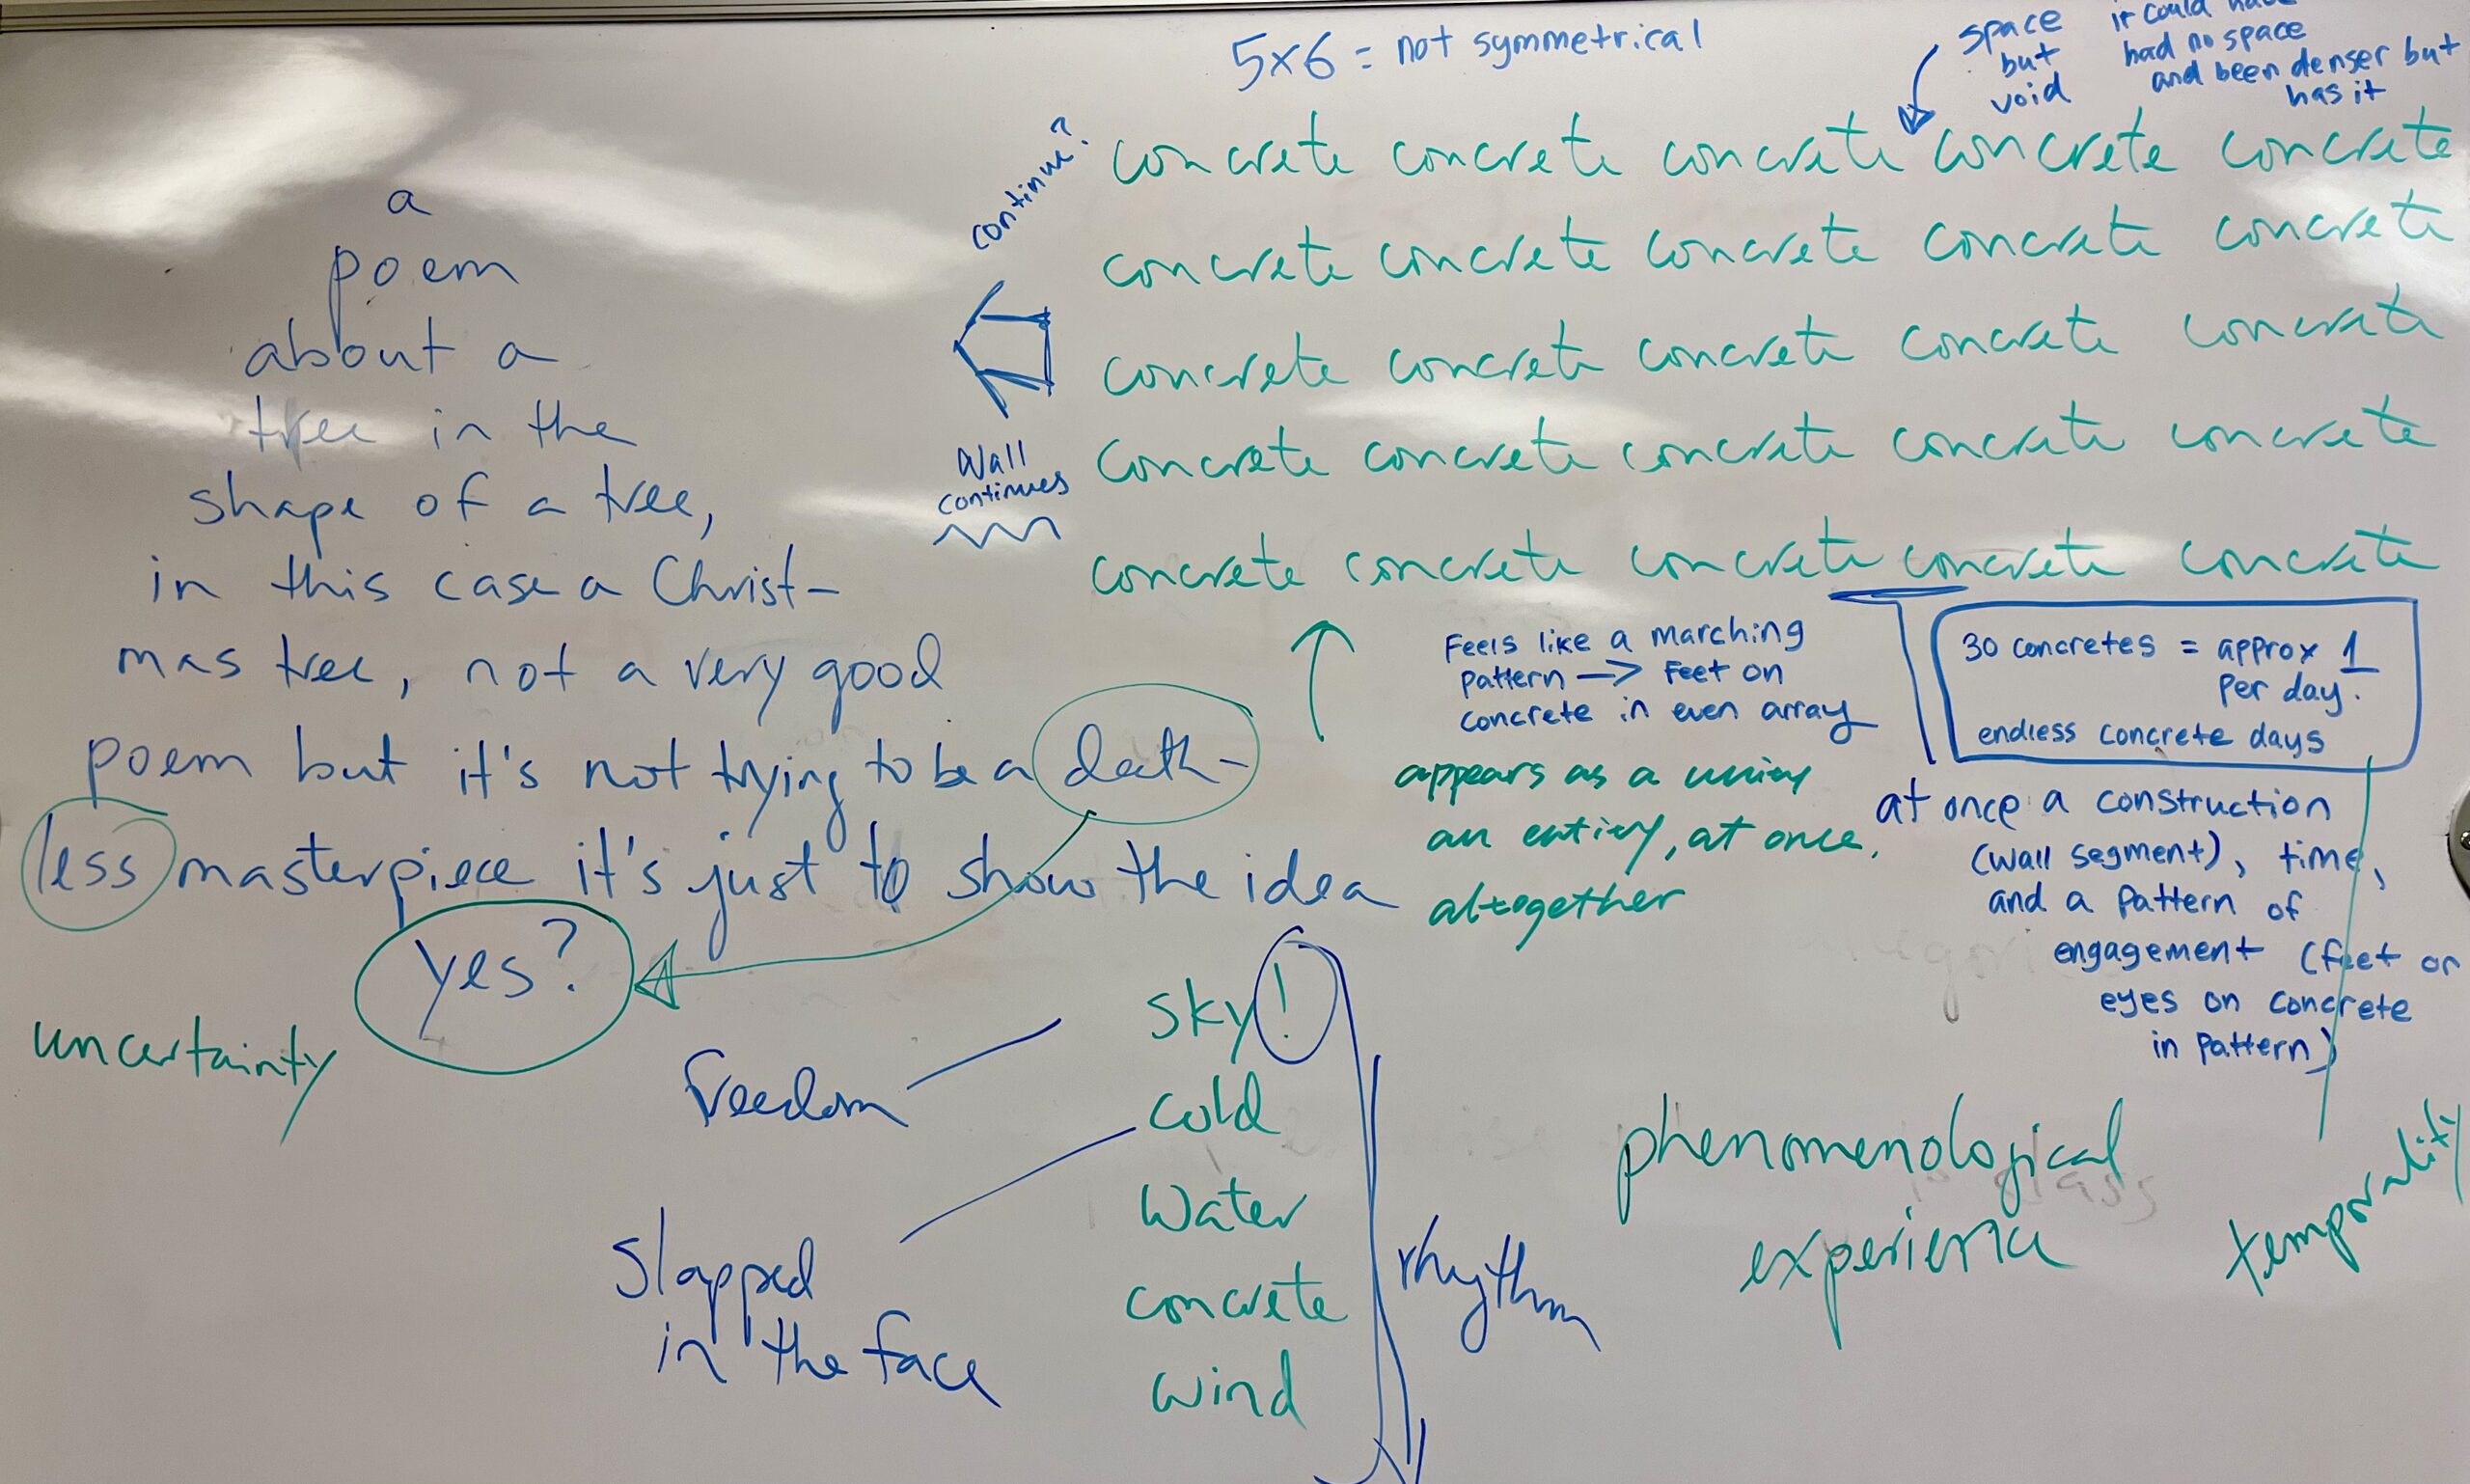 5x6 = not symmetrical
space
but
void
it could have
had no space
and been denser but
has it
continue?
concrete concrete concrete concrete concrete
concrete concrete concrete concrete concrete
concrete concrete concrete concrete concrete
concrete concrete concrete concrete concrete
concrete concrete concrete concrete concrete
Wall
continues
a
poem
about a
tree in the
shape of a tree,
in this case a Christ-
mas tree, not a very good
poem but it's not trying to be a death-
less masterpiece it's just to show the idea
yes?
uncertainty
Feels like a marching
pattern -> feet on
concrete in even array
30 concretes = approx 1
per day.
endless concrete days
appears as a
an entity, at once,
altogether
at once a construction
(wall segment), time,
and a pattern of
engagement (feet or
eyes on concrete
in pattern)
sky!
cold
water
concrete
wind
freedom
slapped
in the face
rhythm
phenomenological
experience
temporality